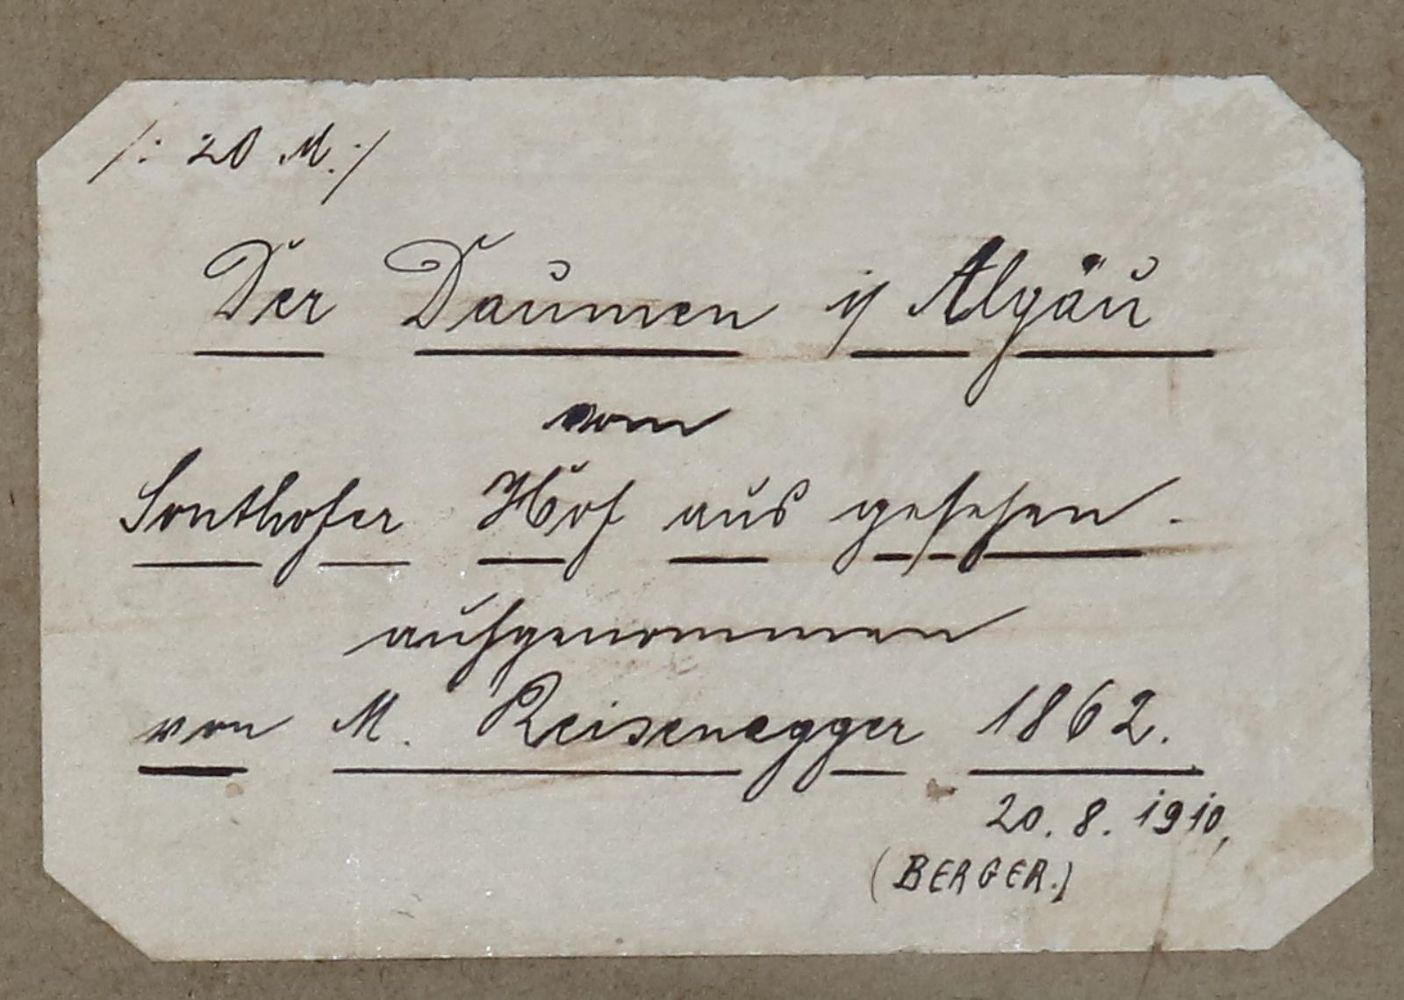 /: 20 M. :/
Der Daumen i/ Algäu
vom
Sonthofer Hof aus gesehen.
aufgenommen
von M. Reisenegger 1862.
20. 8. 1910,
(BERGER.)